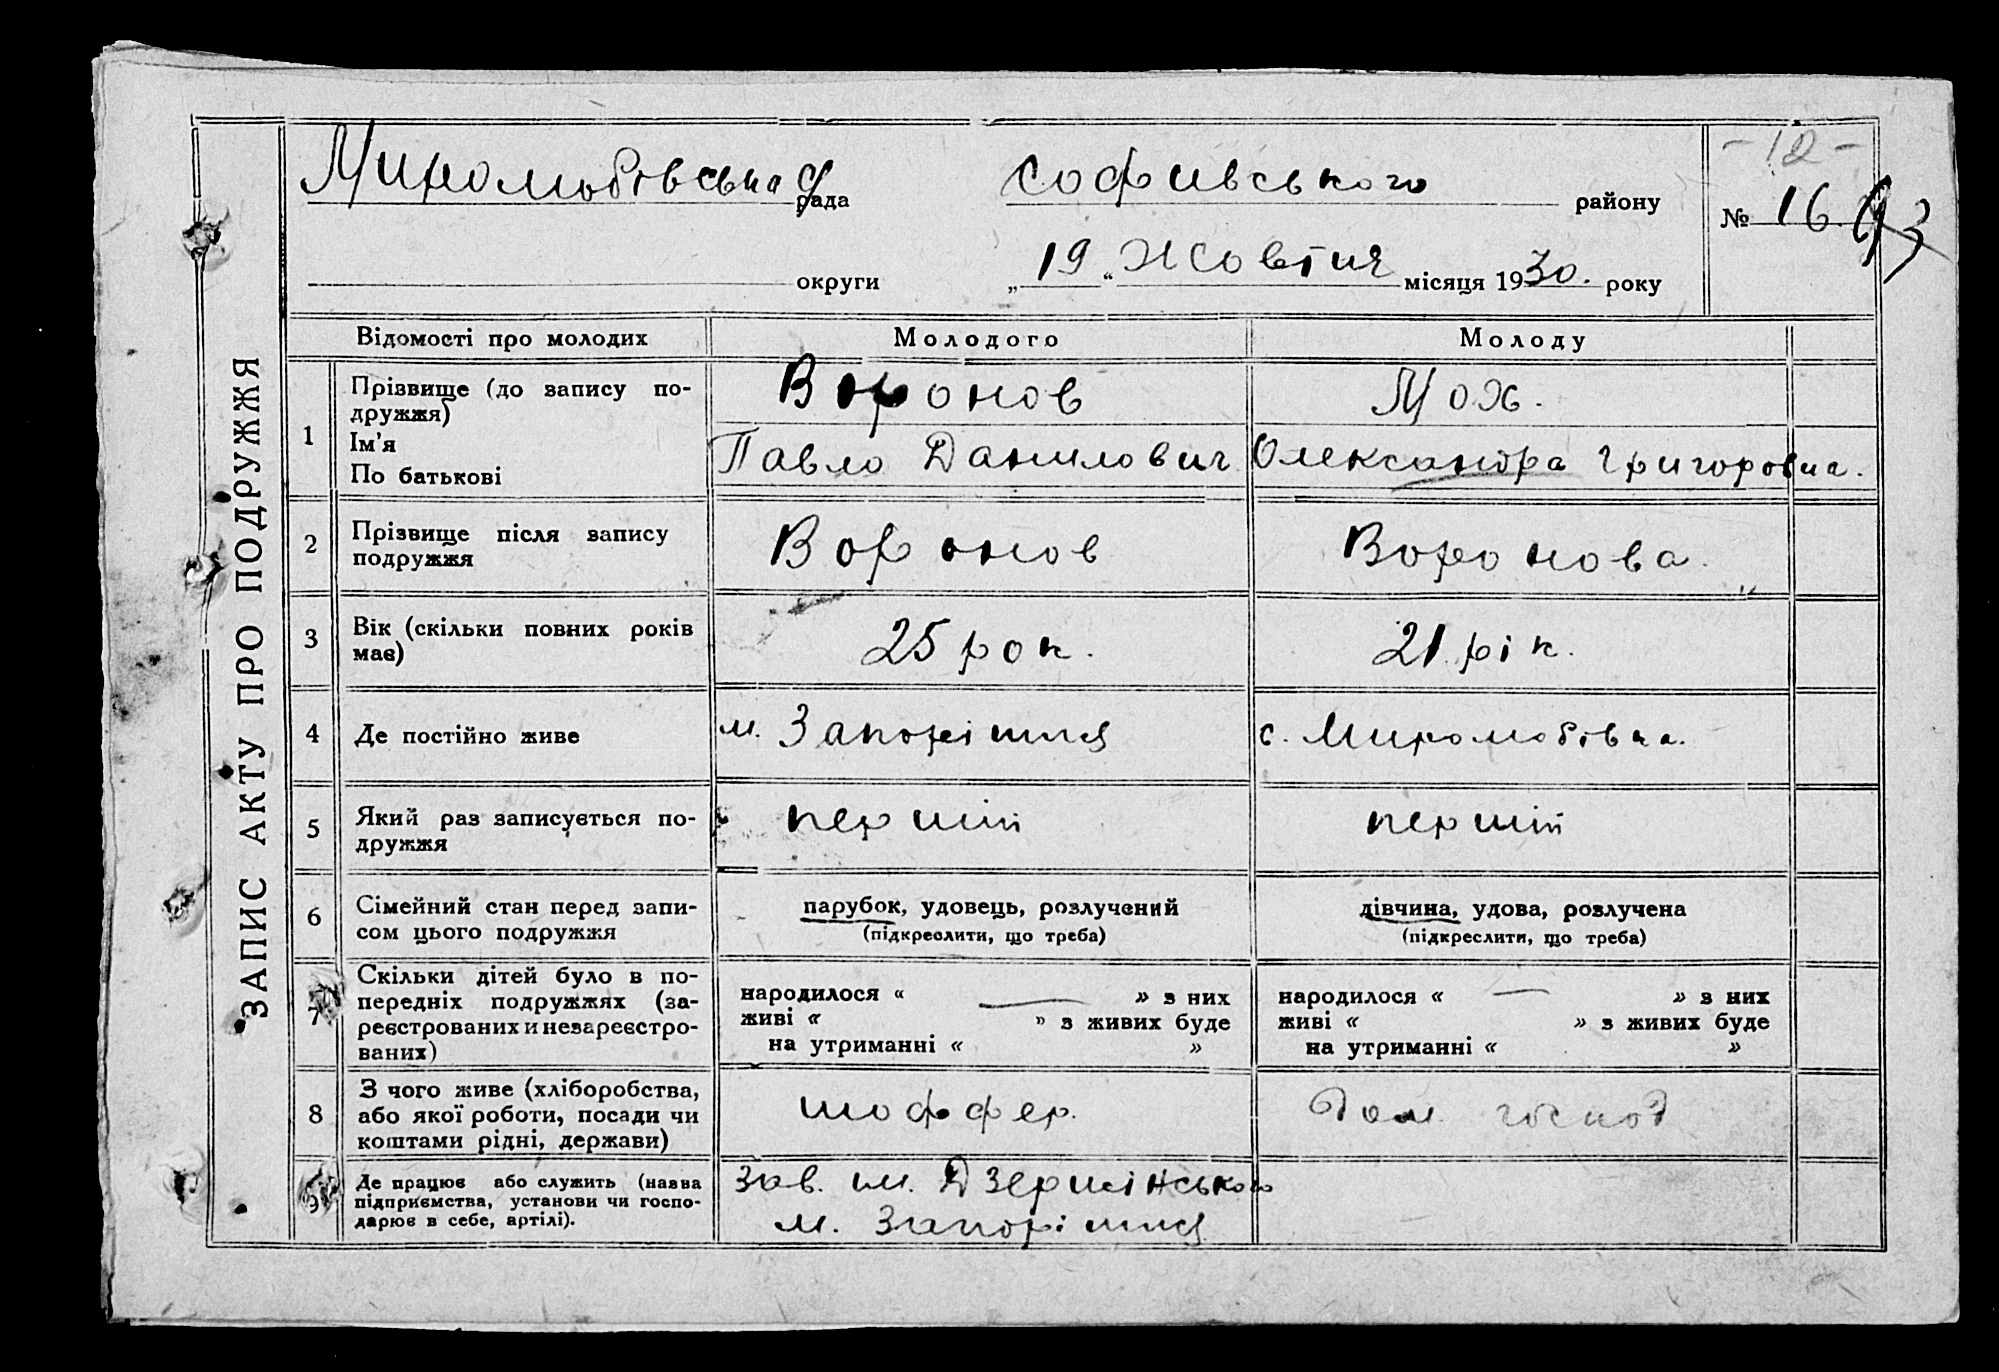 ЗАПИС АКТУ ПРО ПОДРУЖЖЯ
- 12 -
Миролюбівська рада
Софиївського району
№ 16 93
округи
„19“ Жовтня місяця 1930. року
Відомості про молодих
Молодого
Молоду
1
Прізвище (до запису по-
дружжя)
Ім'я
По батькові
Воронов
Павло Данилович
Мох.
Олександра Григоровна.
2
Прізвище після запису
подружжя
Воронов
Воронова.
3
Вік (скільки повних років
має)
25 рок.
21 рік.
4
Де постійно живе
м. Запоріжжя
с. Миролюбівка.
5
Який раз записується по-
дружжя
перший
перший
6
Сімейний стан перед запи-
сом цього подружжя
парубок, удовець, розлучений
(підкреслити, що треба)
дівчина, удова, розлучена
(підкреслити, що треба)
7
Скільки дітей було в по-
передніх подружжях (за-
реєстрованих и незареєстро-
ваних)
народилося « — » з них
живі « » з живих буде
на утриманні « »
народилося « — » з них
живі « » з живих буде
на утриманні « »
8
З чого живе (хліборобства,
або якої роботи, посади чи
коштами рідні, держави)
шоффер.
Дом. господ
9
Де працює або служить (назва
підприємства, установи чи госпо-
дарює в себе, артілі).
Зав. им. Дзержінського
м. Запоріжжя